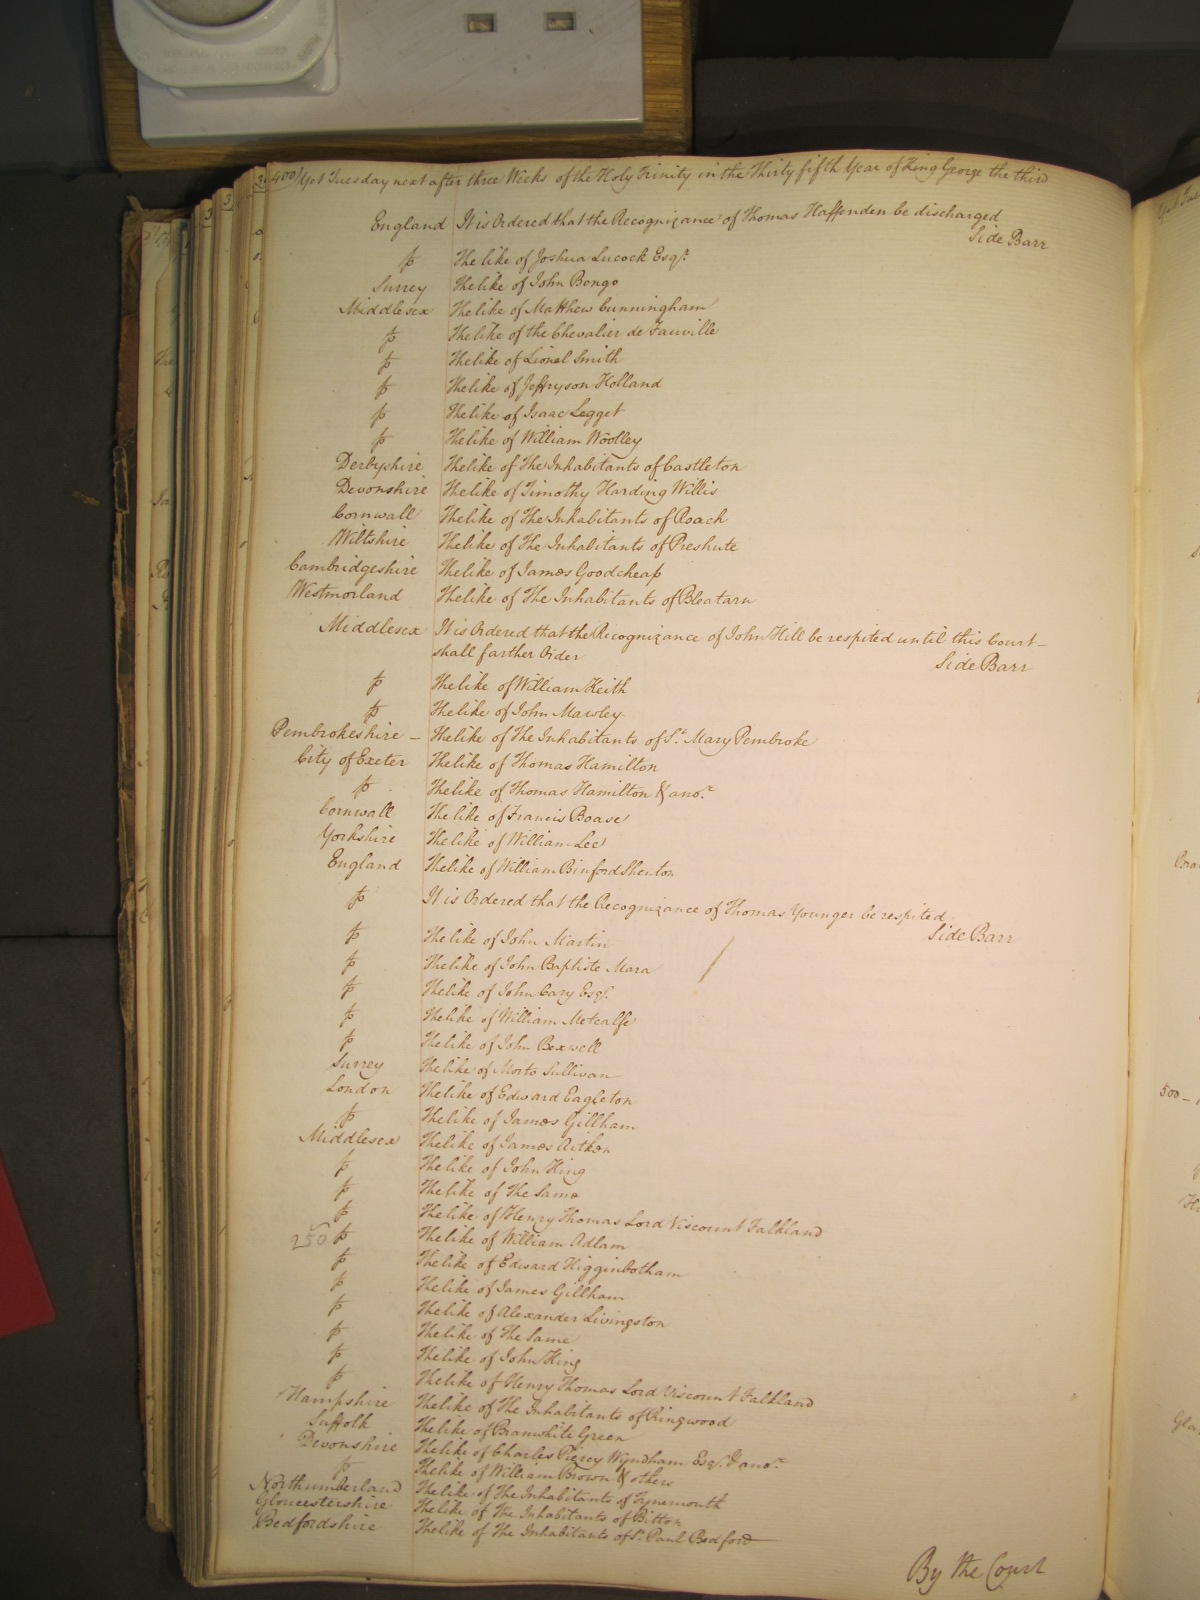 400 Yet Tuesday next after three Weeks of the Holy Trinity in the Thirty fifth Year of King George the third
England It is Ordered that the Recognizance of Thomas Haffenden be discharged
Side Barr
þ The like of Joshua Lucock Esqr.
Surrey The like of John Bongo
Middlesex The like of Matthew Cunningham
þ The like of the Chevalier de Fauville
þ The like of Lionel Smith
þ The like of Jeffryson Holland
þ The like of Isaac Legget
þ The like of William Woolley
Derbyshire The like of The Inhabitants of Castleton
Devonshire The like of Timothy Harding Willis
Cornwall The like of The Inhabitants of Roach
Wiltshire The like of The Inhabitants of Preshute
Cambridgeshire The like of James Goodcheap
Westmorland The like of The Inhabitants of Bleatarn
Middlesex It is Ordered that the Recognizance of John Hill be respited until this Court
shall farther Order
Side Barr
þ The like of William Keith
þ The like of John Mawley
Pembrokeshire – The like of The Inhabitants of St. Mary Pembroke
City of Exeter The like of Thomas Hamilton
þ The like of Thomas Hamilton & anor.
Cornwall The like of Francis Boase
Yorkshire The like of William Lee
England The like of William Binford Shenton
þ It is Ordered that the Recognizance of Thomas Younger be respited
Side Barr
þ The like of John Martin
þ The like of John Baptiste Mara
þ The like of John Cary Esqr.
þ The like of William Metcalfe
þ The like of John Boxwell
Surrey The like of Morto Sullivan
London The like of Edward Eagleton
þ The like of James Gillham
Middlesex The like of James Aitken
þ The like of John King
þ The like of The Same
þ The like of Henry Thomas Lord Viscount Falkland
250 þ The like of William Adlam
þ The like of Edward Higginbotham
þ The like of James Gillham
þ The like of Alexander Livingston
þ The like of The Same
þ The like of John King
þ The like of Henry Thomas Lord Viscount Falkland
Hampshire The like of The Inhabitants of Ringwood
Suffolk The like of Branwhite Green
Devonshire The like of Charles Piercy Wyndham Esqr. & anor.
þ The like of William Brown & others
Northumberland The like of The Inhabitants of Tynemouth
Gloucestershire The like of The Inhabitants of Bitton
Bedfordshire The like of The Inhabitants of St. Paul Bedford
By the Court
500 –